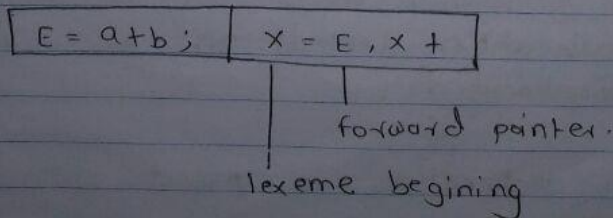 E = a+b; x = E, x +
forward pointer.
lexeme begining